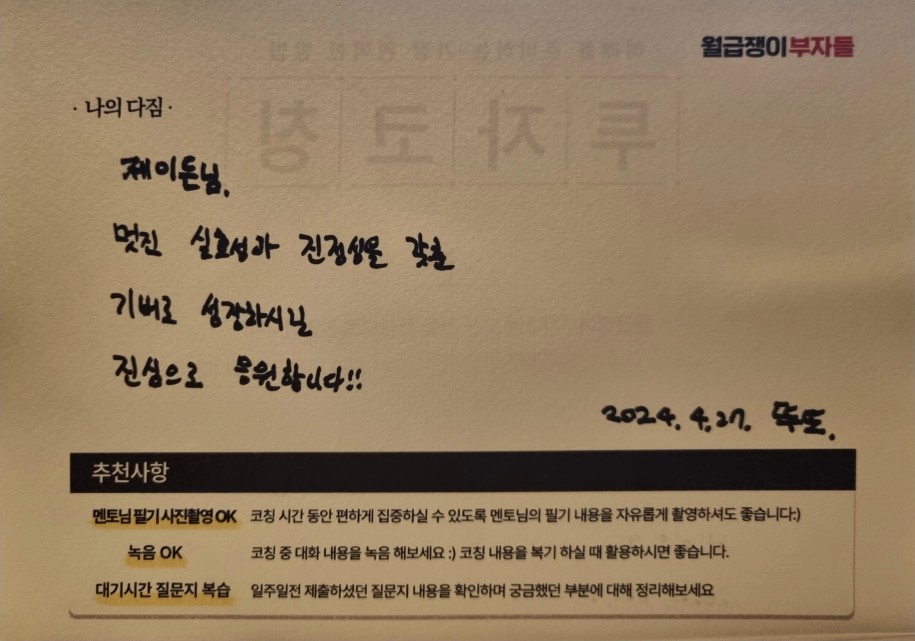 월급쟁이부자들
· 나의 다짐 ·
제이든님,
멋진 실효성과 진정성을 갖춘
기버로 성장하시길
진심으로 응원합니다!!
2024. 4. 27. 뚜또.
추천사항
멘토님 필기 사진촬영 OK 코칭 시간 동안 편하게 집중하실 수 있도록 멘토님의 필기 내용을 자유롭게 촬영하셔도 좋습니다:)
녹음 OK 코칭 중 대화 내용을 녹음 해보세요 :) 코칭 내용을 복기 하실 때 활용하시면 좋습니다.
대기시간 질문지 복습 일주일전 제출하셨던 질문지 내용을 확인하며 궁금했던 부분에 대해 정리해보세요